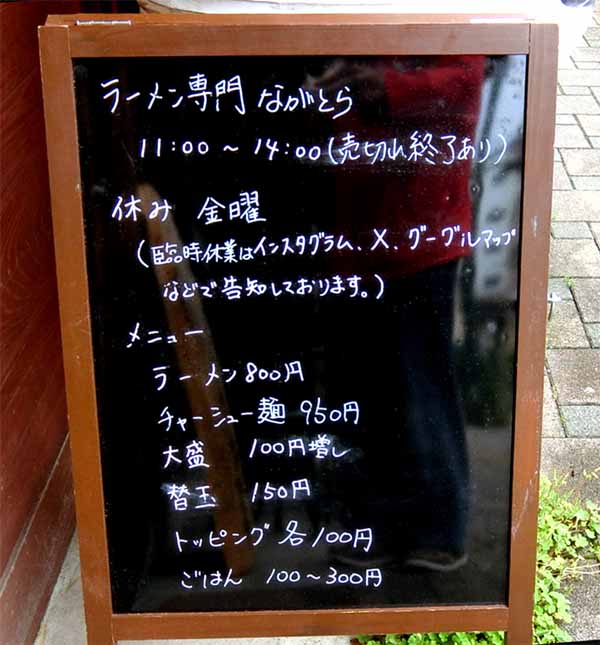 ラーメン専門 ながとら
11:00 〜 14:00(売切れ終了あり)
休み 金曜
(臨時休業はインスタグラム、X、グーグルマップ
などで告知しております。)
メニュー
ラーメン 800円
チャーシュー麺 950円
大盛 100円増し
替玉 150円
トッピング 各100円
ごはん 100〜300円